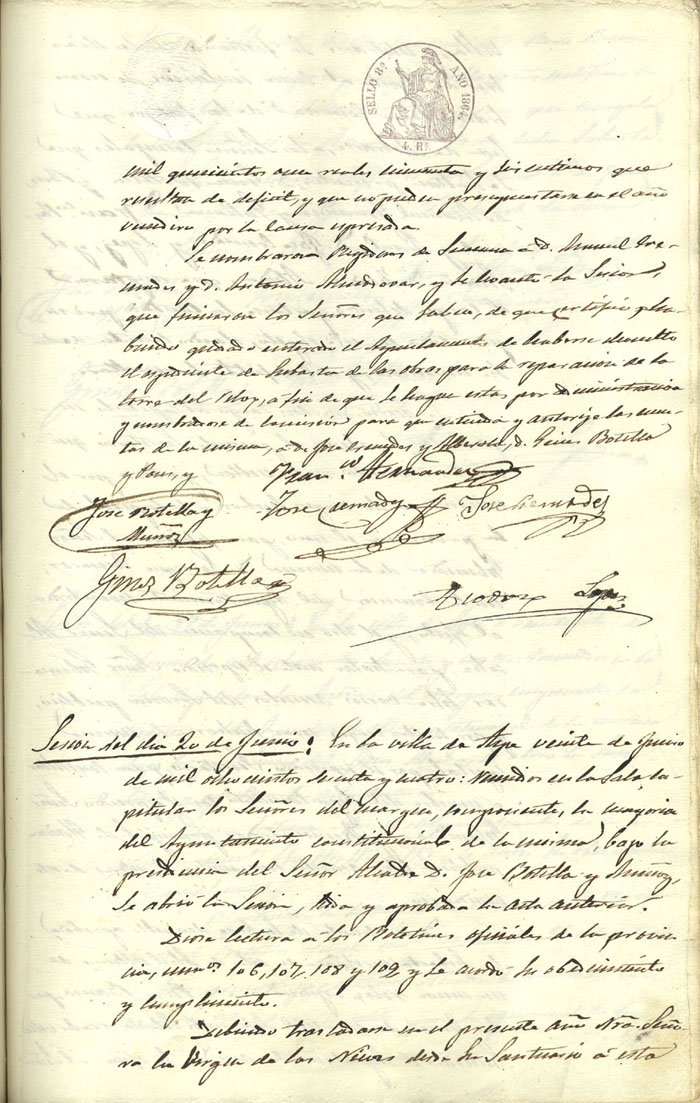 SELLO 8º AÑO 1864.
4. Rs.
mil quinientos once reales cincuenta y seis centimos que
resultan de deficit, y que no pueden presupuestarse en el año
venidero por la causa espresada.
Se nombraron Regidores de Semana á D. Manuel
y D. Antonio Almodovar, y se levantó la Sesion,
que firmaron los Señores que saben, de que certifico
habiendo quedado enterado el Ayuntamiento de haberse devuelto
el espediente de Subasta de las obras para la reparacion de la
torre del Relox, a fin de que se hagan estas por administracion
y nombradose de comision para que entienda y autorize las cuen-
tas de la misma, á D. José y D. Gines Botella
y Pons, y
Franco. Hernandez
Jose Botella y
Muñoz
Jose Cremades
Jose Cremades
Gines Botella
Lopez
Sesion del dia 20 de Junio: En la villa de Aspe veinte de Junio
de mil ochocientos sesenta y cuatro: reunidos en la Sala Ca-
pitular los Señores del margen, componiente, la mayoria
del Ayuntamiento constitucional de la misma, bajo la
presidencia del Señor Alcalde D. Jose Botella y Muñoz,
Se abrió la Sesion, leida y aprobada la acta anterior.
Diose lectura á los Boletines oficiales de la provin-
cia, numos. 106, 107, 108 y 109 y se acordó su obedecimiento
y cumplimiento.
Debiendo trasladarse en el presente año Nra. Seño-
ra la Virgen de las Nieves desde su Santuario á esta